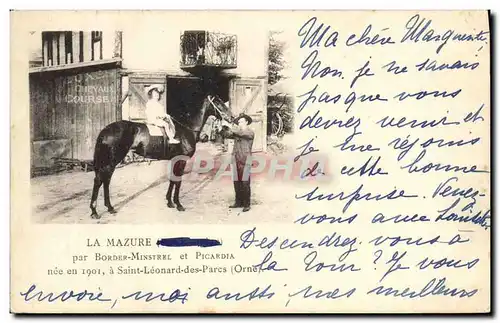 CHEVAUX
COURSE
CPARAMA
LA MAZURE
par BORDER-MINSTREL et PICARDIA
née en 1901, à Saint-Léonard-des-Parcs (Orne)
Ma chère Marquente,
Non, je ne savais
pas que vous
devrez venir et
je me réjouis
de cette bonne
surprise. Venez-
vous avec Louise
Descendrez-vous à
la Tour? Je vous
envoie, moi aussi, mes meilleurs